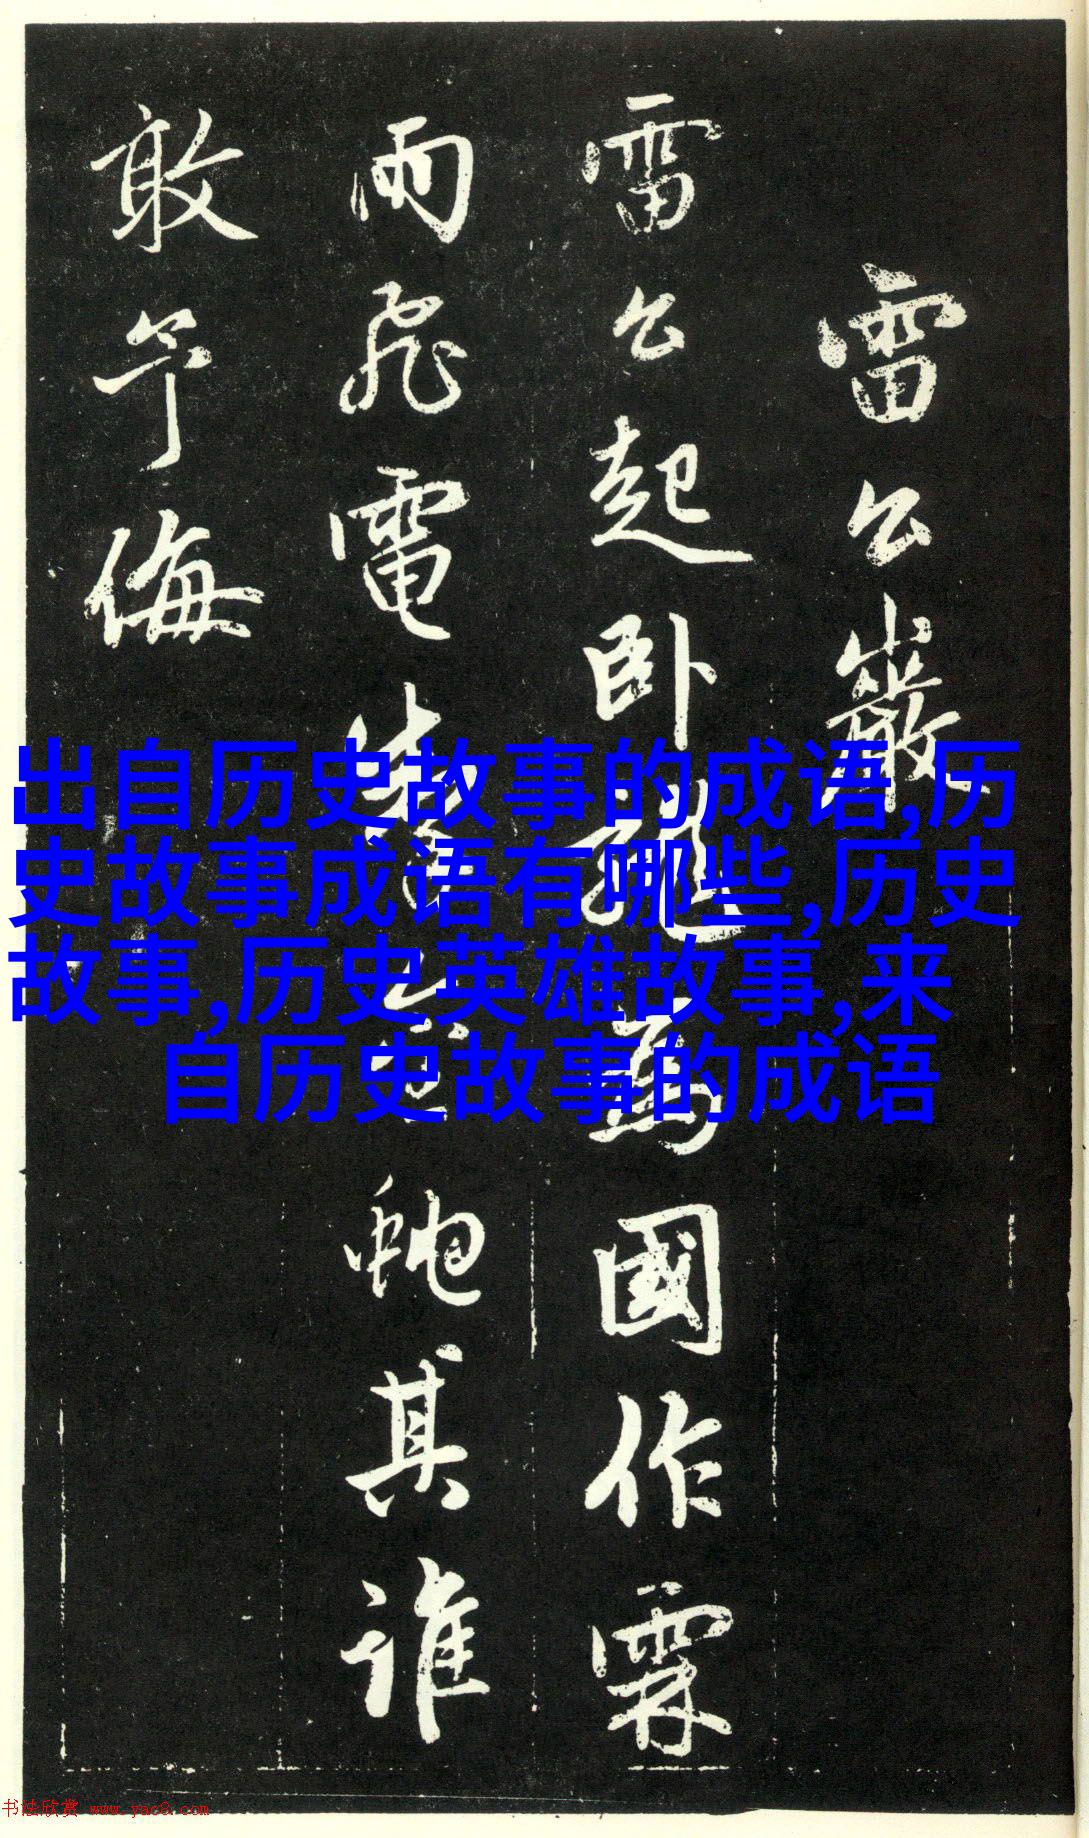 雷公巖
雷公起卧龍為國作霖
雨飛電蛇其誰
敢予侮
出自历史故事的成语,历
史故事成语有哪些,历史
故事,历史英雄故事,来
自历史故事的成语
书法欣赏 www.yac8.com